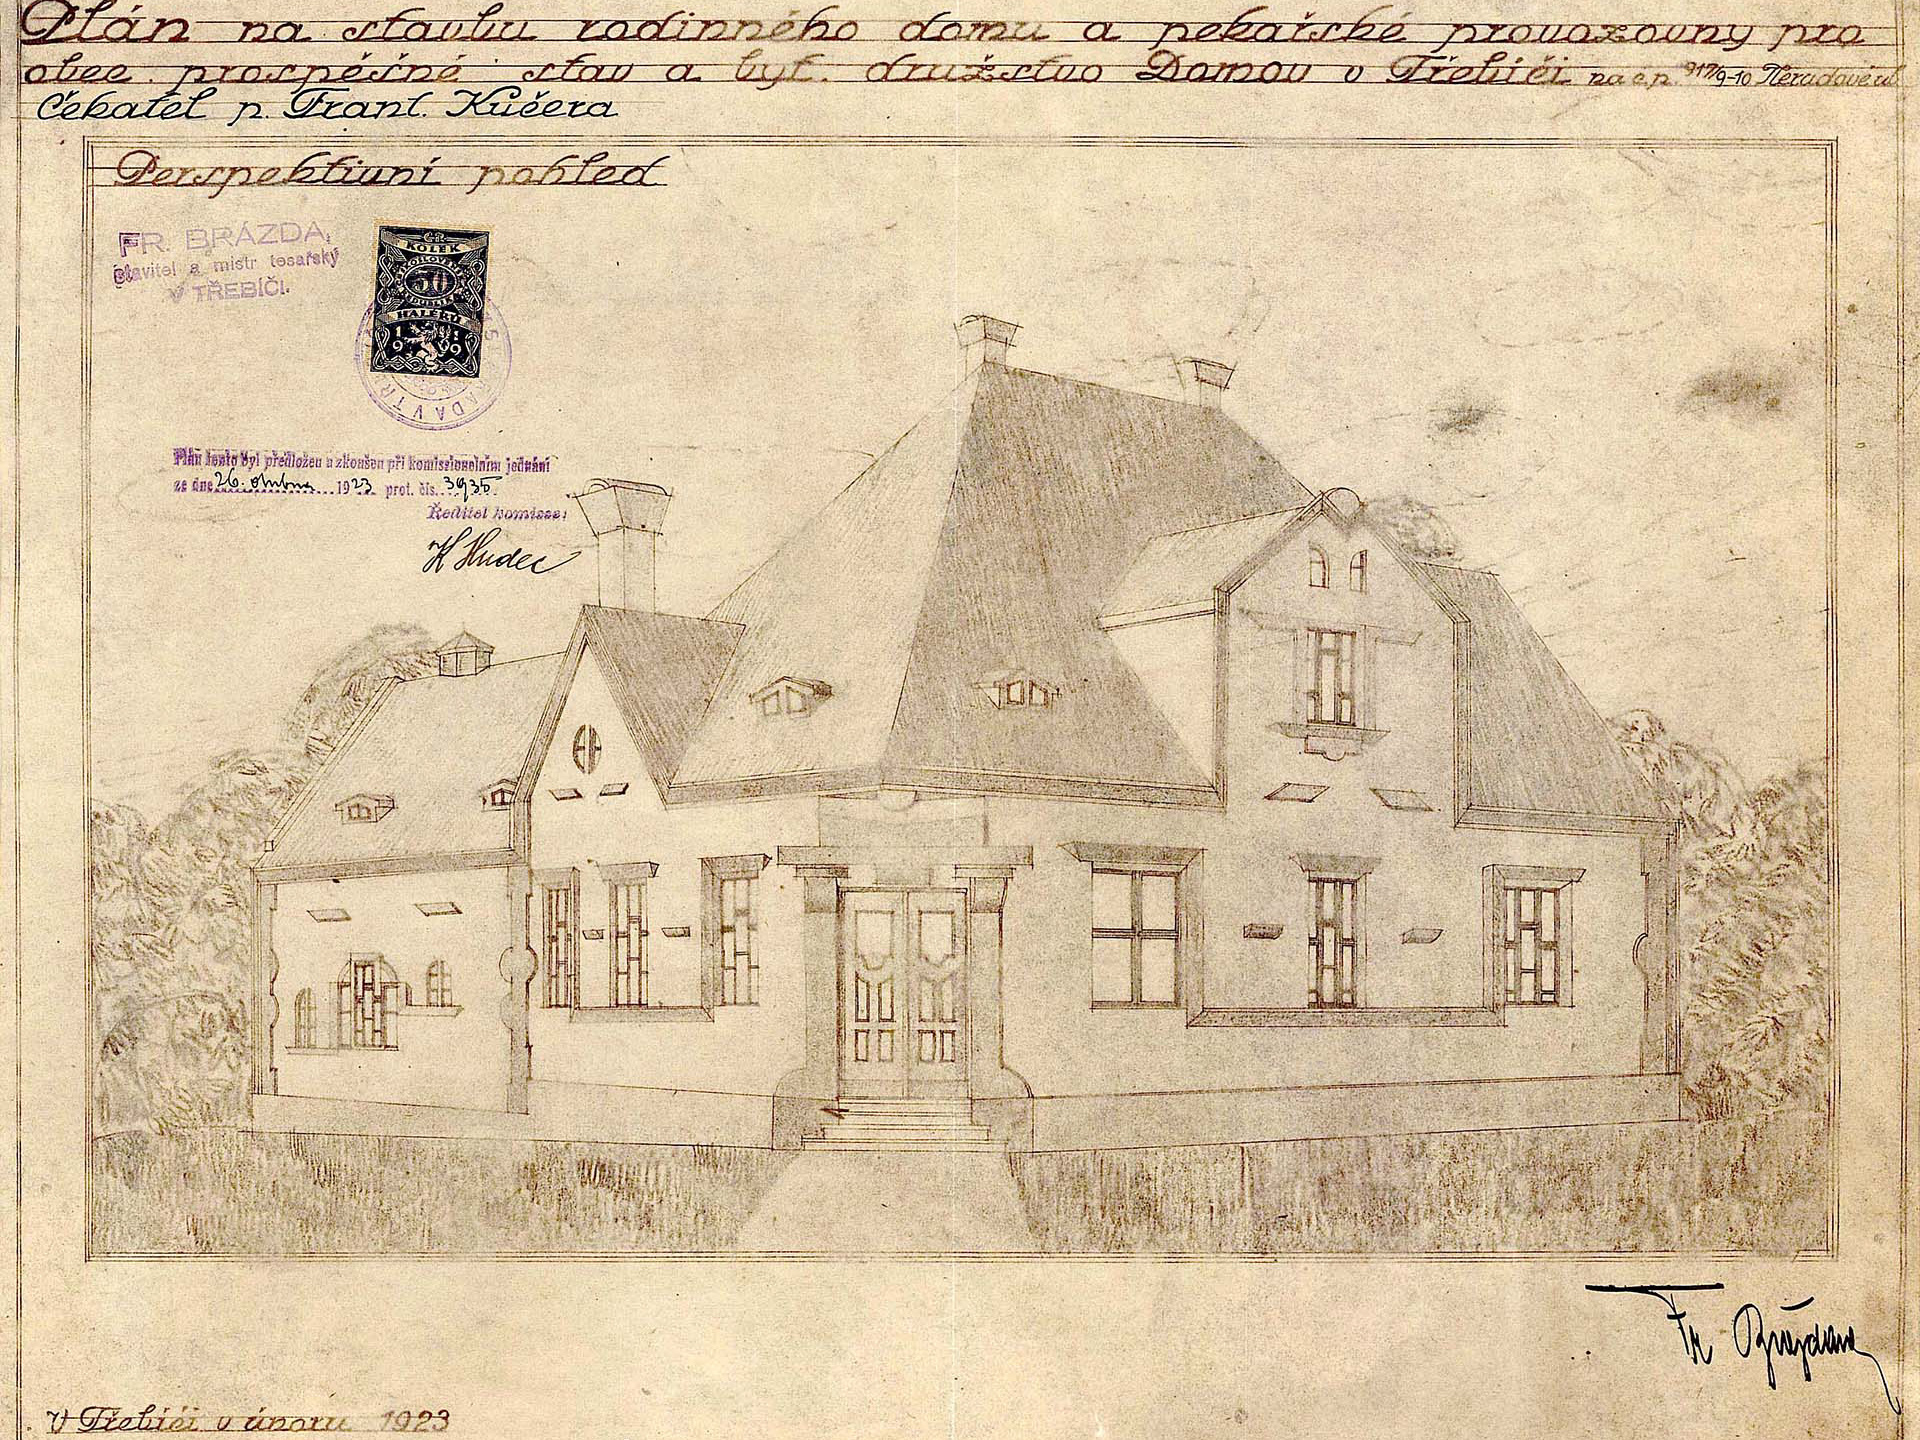 Plán na stavbu rodinného domu a pekařské provozovny pro
obec. prospěšné stav a byt. družstvo Domov v Třebíči na č.p. 917/9-10
Čekatel p. Frant. Kučera
Perspektivní pohled
FR. BRÁZDA,
stavitel a mistr tesařský
V TŘEBÍČI.
ČR
KOLEK
50
HALÉŘŮ
1919
Plán tento byl předložen a zkoušen při komissionelním jednání
ze dne 26. dubna 1923 prot. čís. 3935
Ředitel komisse:
Hudec
Fr Brázda
V Třebíči v únoru 1923